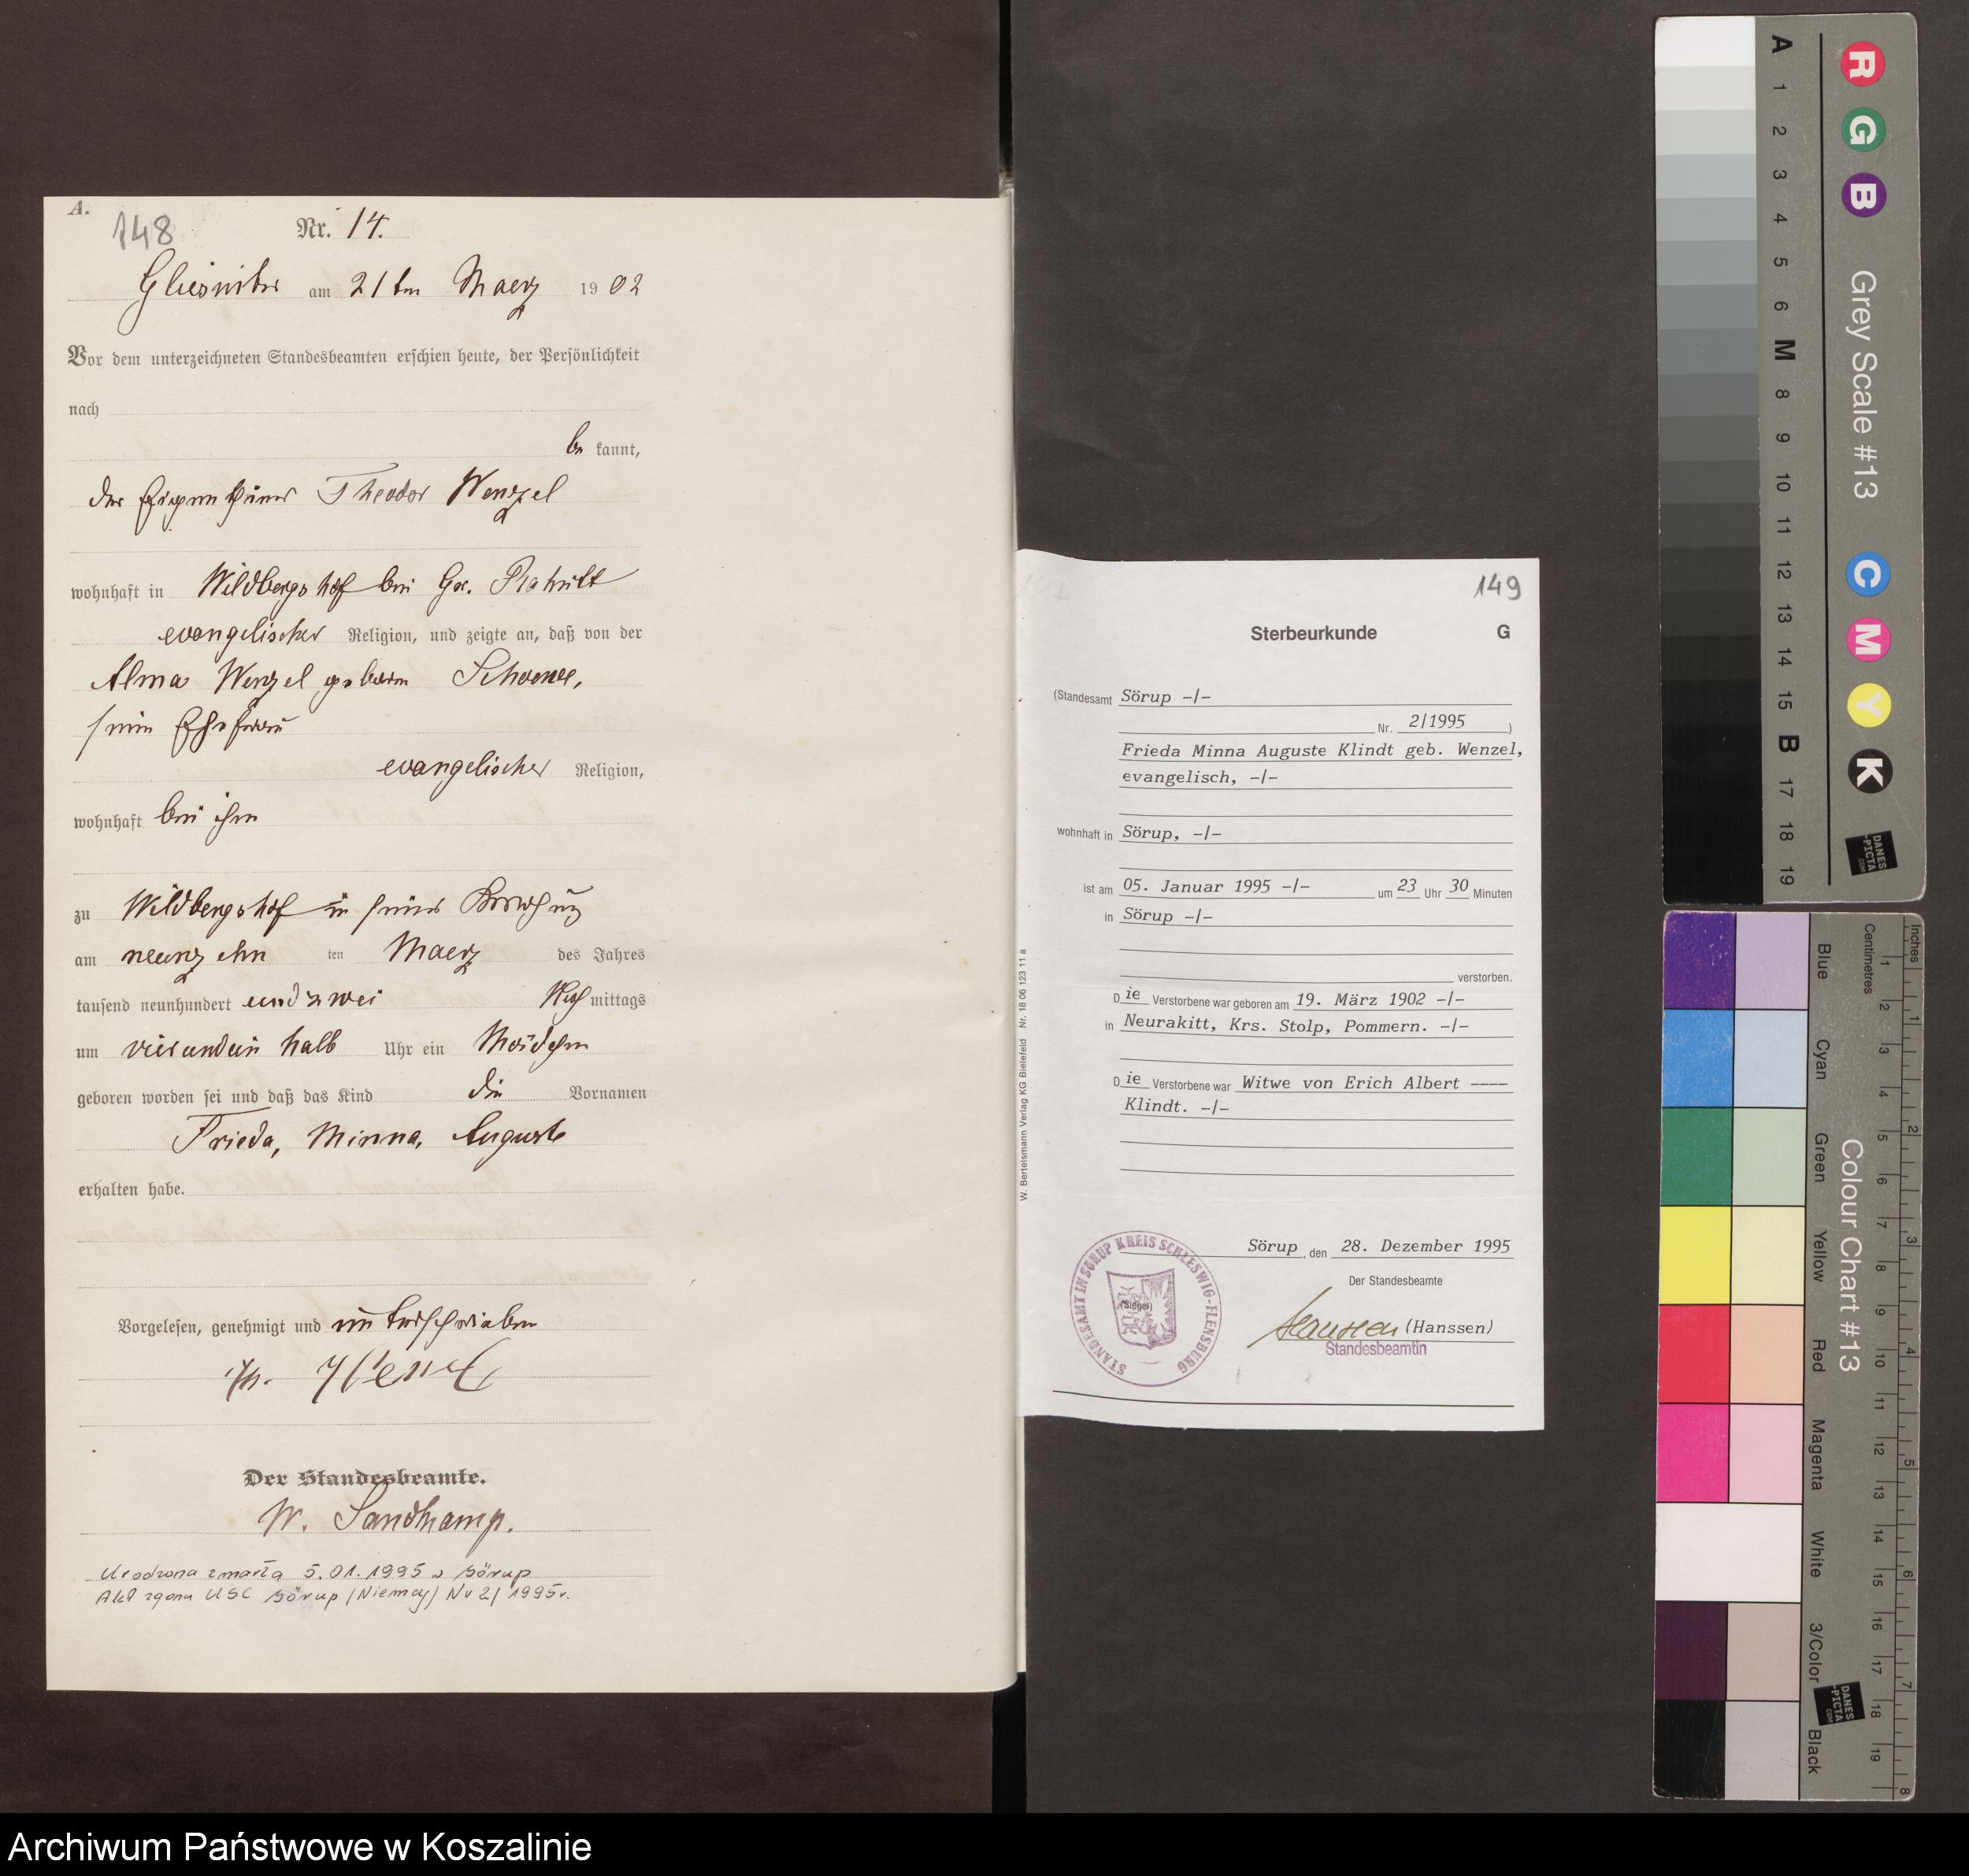 A.
148
Nr. 14.
Gliesnitz am 21ten Maerz 1902
Vor dem unterzeichneten Standesbeamten erschien heute, der Persönlichkeit
nach
be kannt,
der Eigenthümer Theodor Wenzel
wohnhaft in Wildbergshof bei Gr. Rakitt
evangelischer Religion, und zeigte an, daß von der
Alma Wenzel geboren
seine Ehefrau
evangelischer Religion,
wohnhaft bei ihm
zu Wildbergshof in seiner Wohnung
am neunzehn ten Maerz des Jahres
tausend neunhundert und zwei mittags
um vierundein halb Uhr ein Mädchen
geboren worden sei und daß das Kind die Vornamen
Frieda, Minna, Auguste
erhalten habe.
Vorgelesen, genehmigt und unterschrieben
Th. Wenzel
Der Standesbeamte.
W. Sandkamp.
Urodzona zmarła 5.01.1995 w Sörup
Akt zgonu USC Sörup (Niemcy) Nr 2/1995r.
149
Sterbeurkunde G
(Standesamt Sörup -/-
Nr. 2/1995 )
Frieda Minna Auguste Klindt geb. Wenzel,
evangelisch, -/-
wohnhaft in Sörup, -/-
ist am 05. Januar 1995 -/- um 23 Uhr 30 Minuten
in Sörup -/-
verstorben.
Die Verstorbene war geboren am 19. März 1902 -/-
in Neurakitt, Krs. Stolp, Pommern. -/-
Die Verstorbene war Witwe von Erich Albert ----
Klindt. -/-
Sörup, den 28. Dezember 1995
Der Standesbeamte
(Siegel)
STANDESAMT IN SÖRUP KREIS SCHLESWIG-FLENSBURG
Hanssen (Hanssen)
Standesbeamtin
W. Bertelsmann Verlag KG Bielefeld Nr. 18 06 123 11 a
R G B
Grey Scale #13
C M Y K
A 1 2 3 4 5 6 M 8 9 10 11 12 13 14 15 B 17 18 19
DANES
-PICTA
.COM
Inches 1 2 3 4 5 6 7 8
Centimetres 1 2 3 4 5 6 7 8 9 10 11 12 13 14 15 16 17 18 19
Colour Chart #13
Blue Cyan Green Yellow Red Magenta White 3/Color Black
DANES
-PICTA
.COM
Archiwum Państwowe w Koszalinie